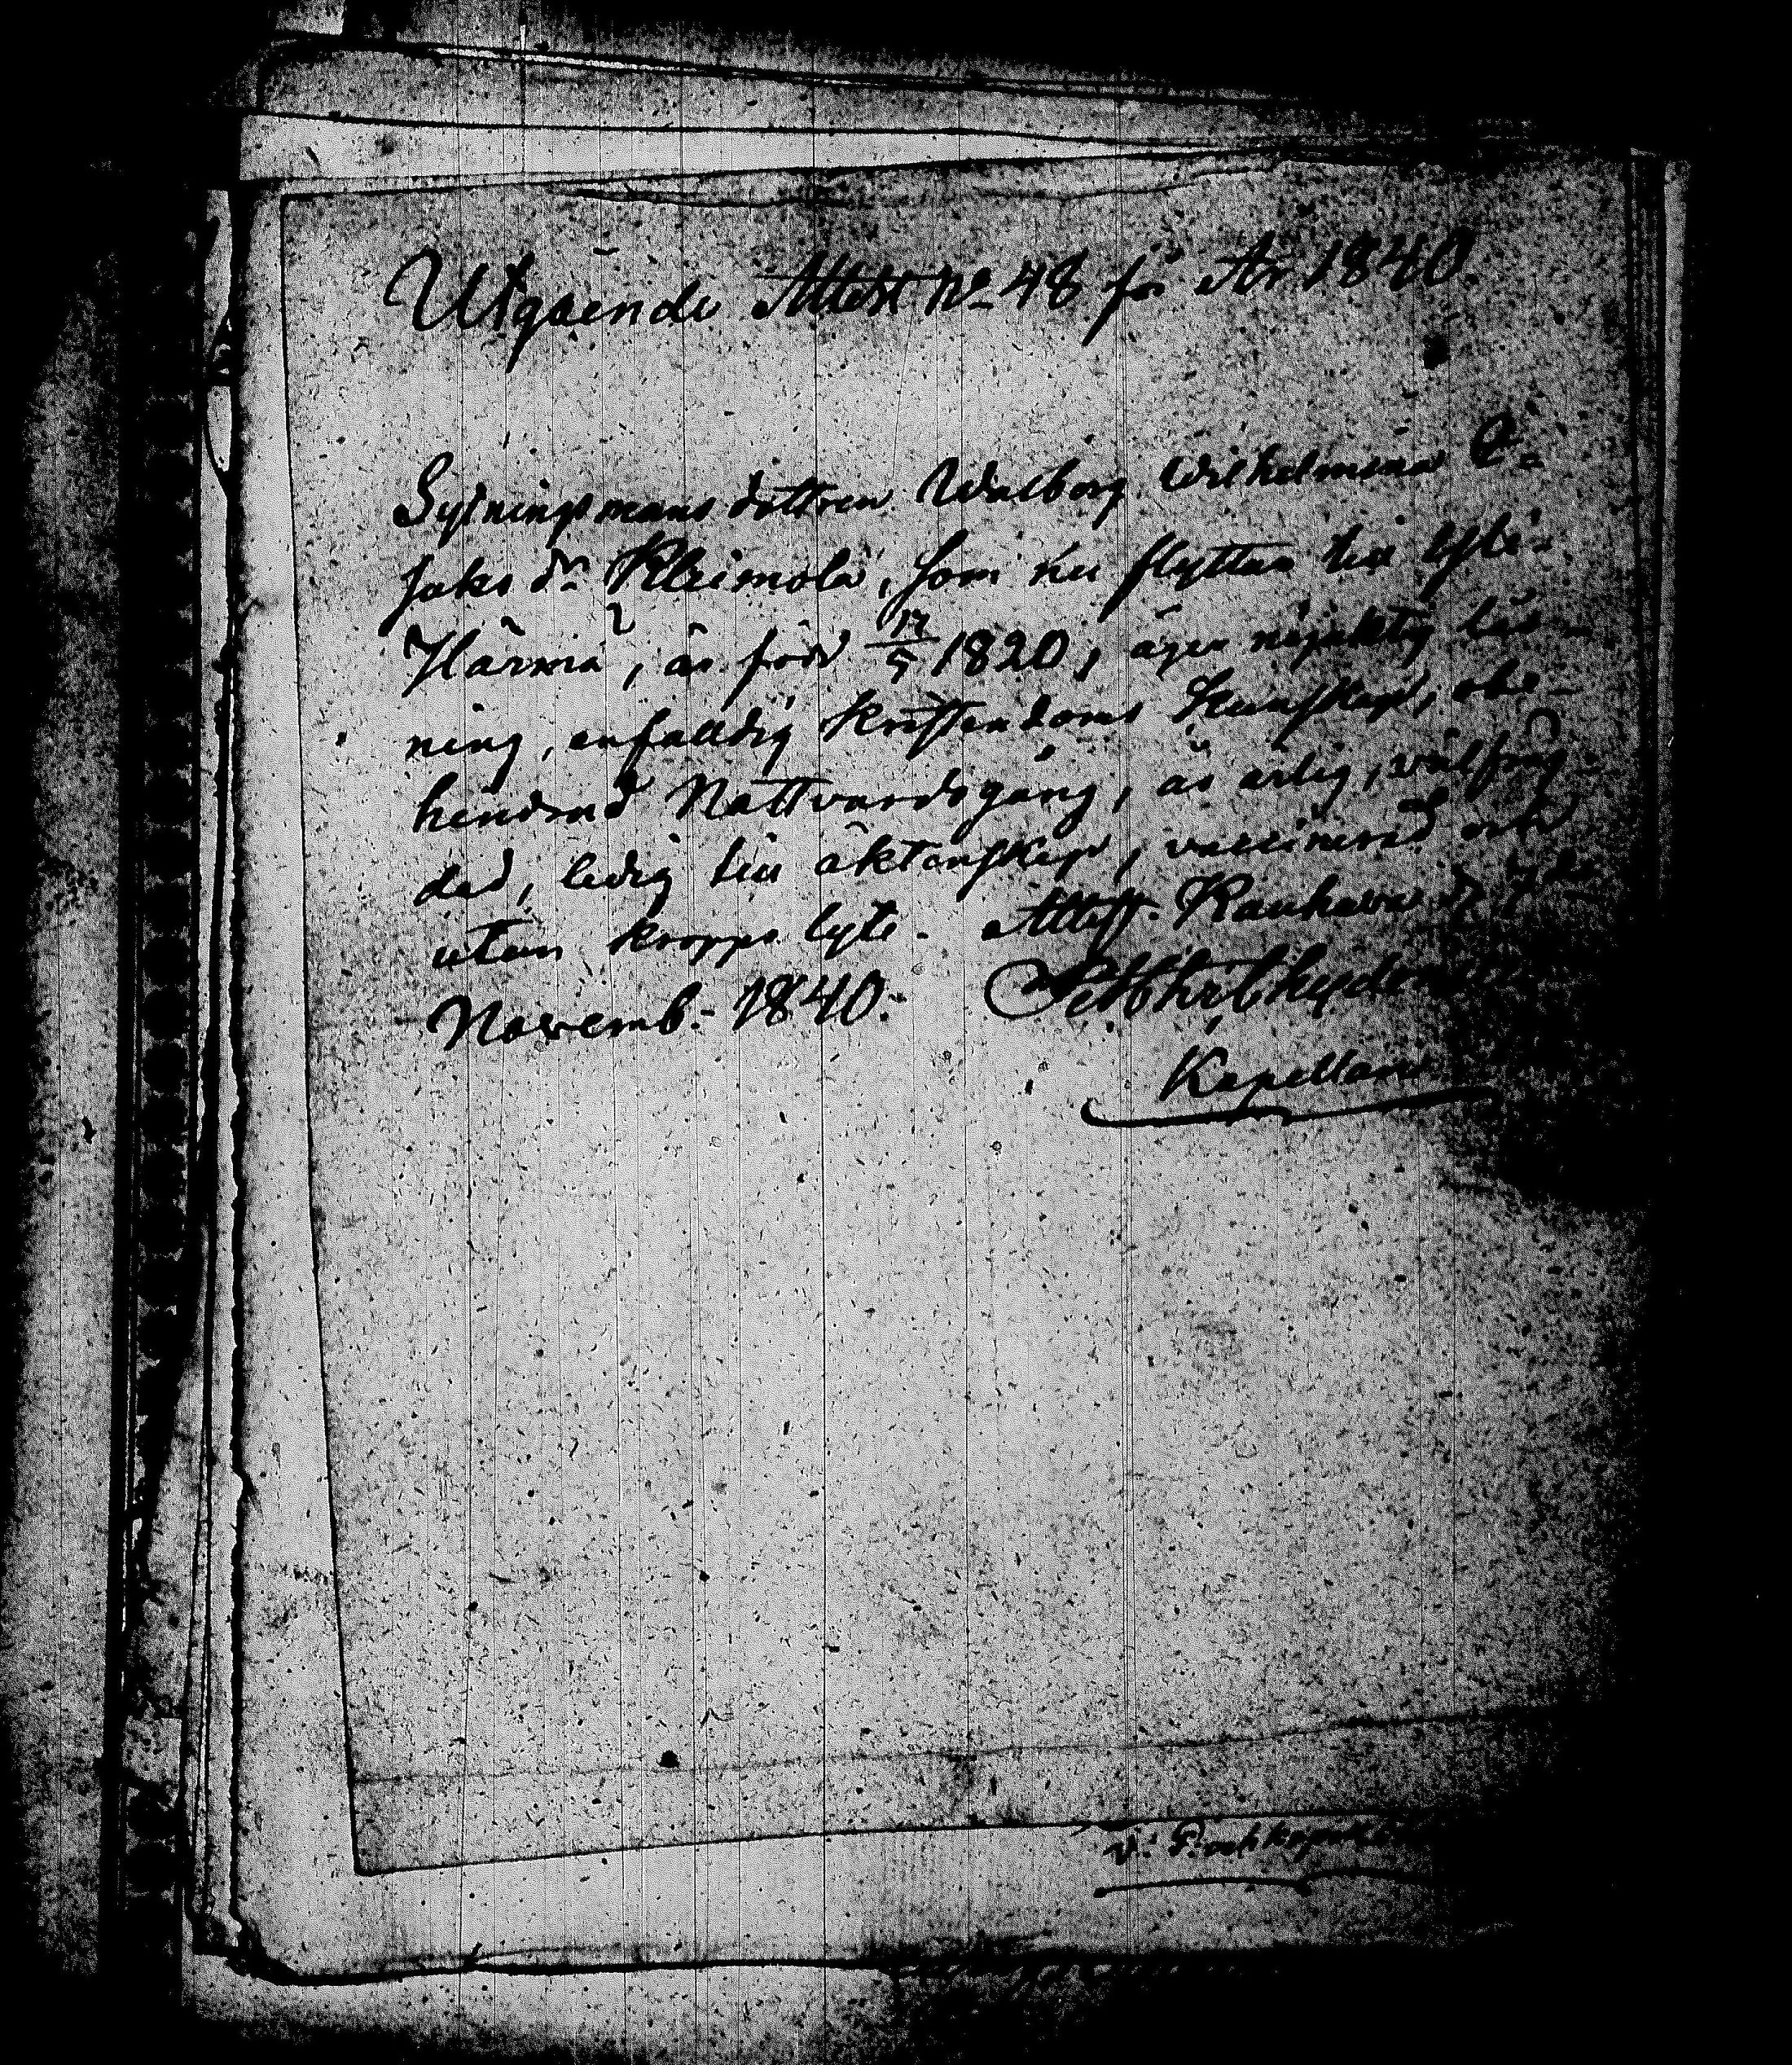 Utgående Attest No 48 för År 1840.
Sytningsmans dottren Walborg Wilhelmina
Jaks dr Kleimola, som nu flyttar till Yli-
Härmä, är född 17/5 1820, äger nöjaktig läs-
ning, enfalldig Kristendoms Kunskap, obe-
hindrad Nattvardsgång, är ärlig, välfräg
dad, ledig till äktenskap, vaccinerad och
utan kropps lyte. Attest. Kauhava d.
Novemb. 1840.
Kapellan
v.